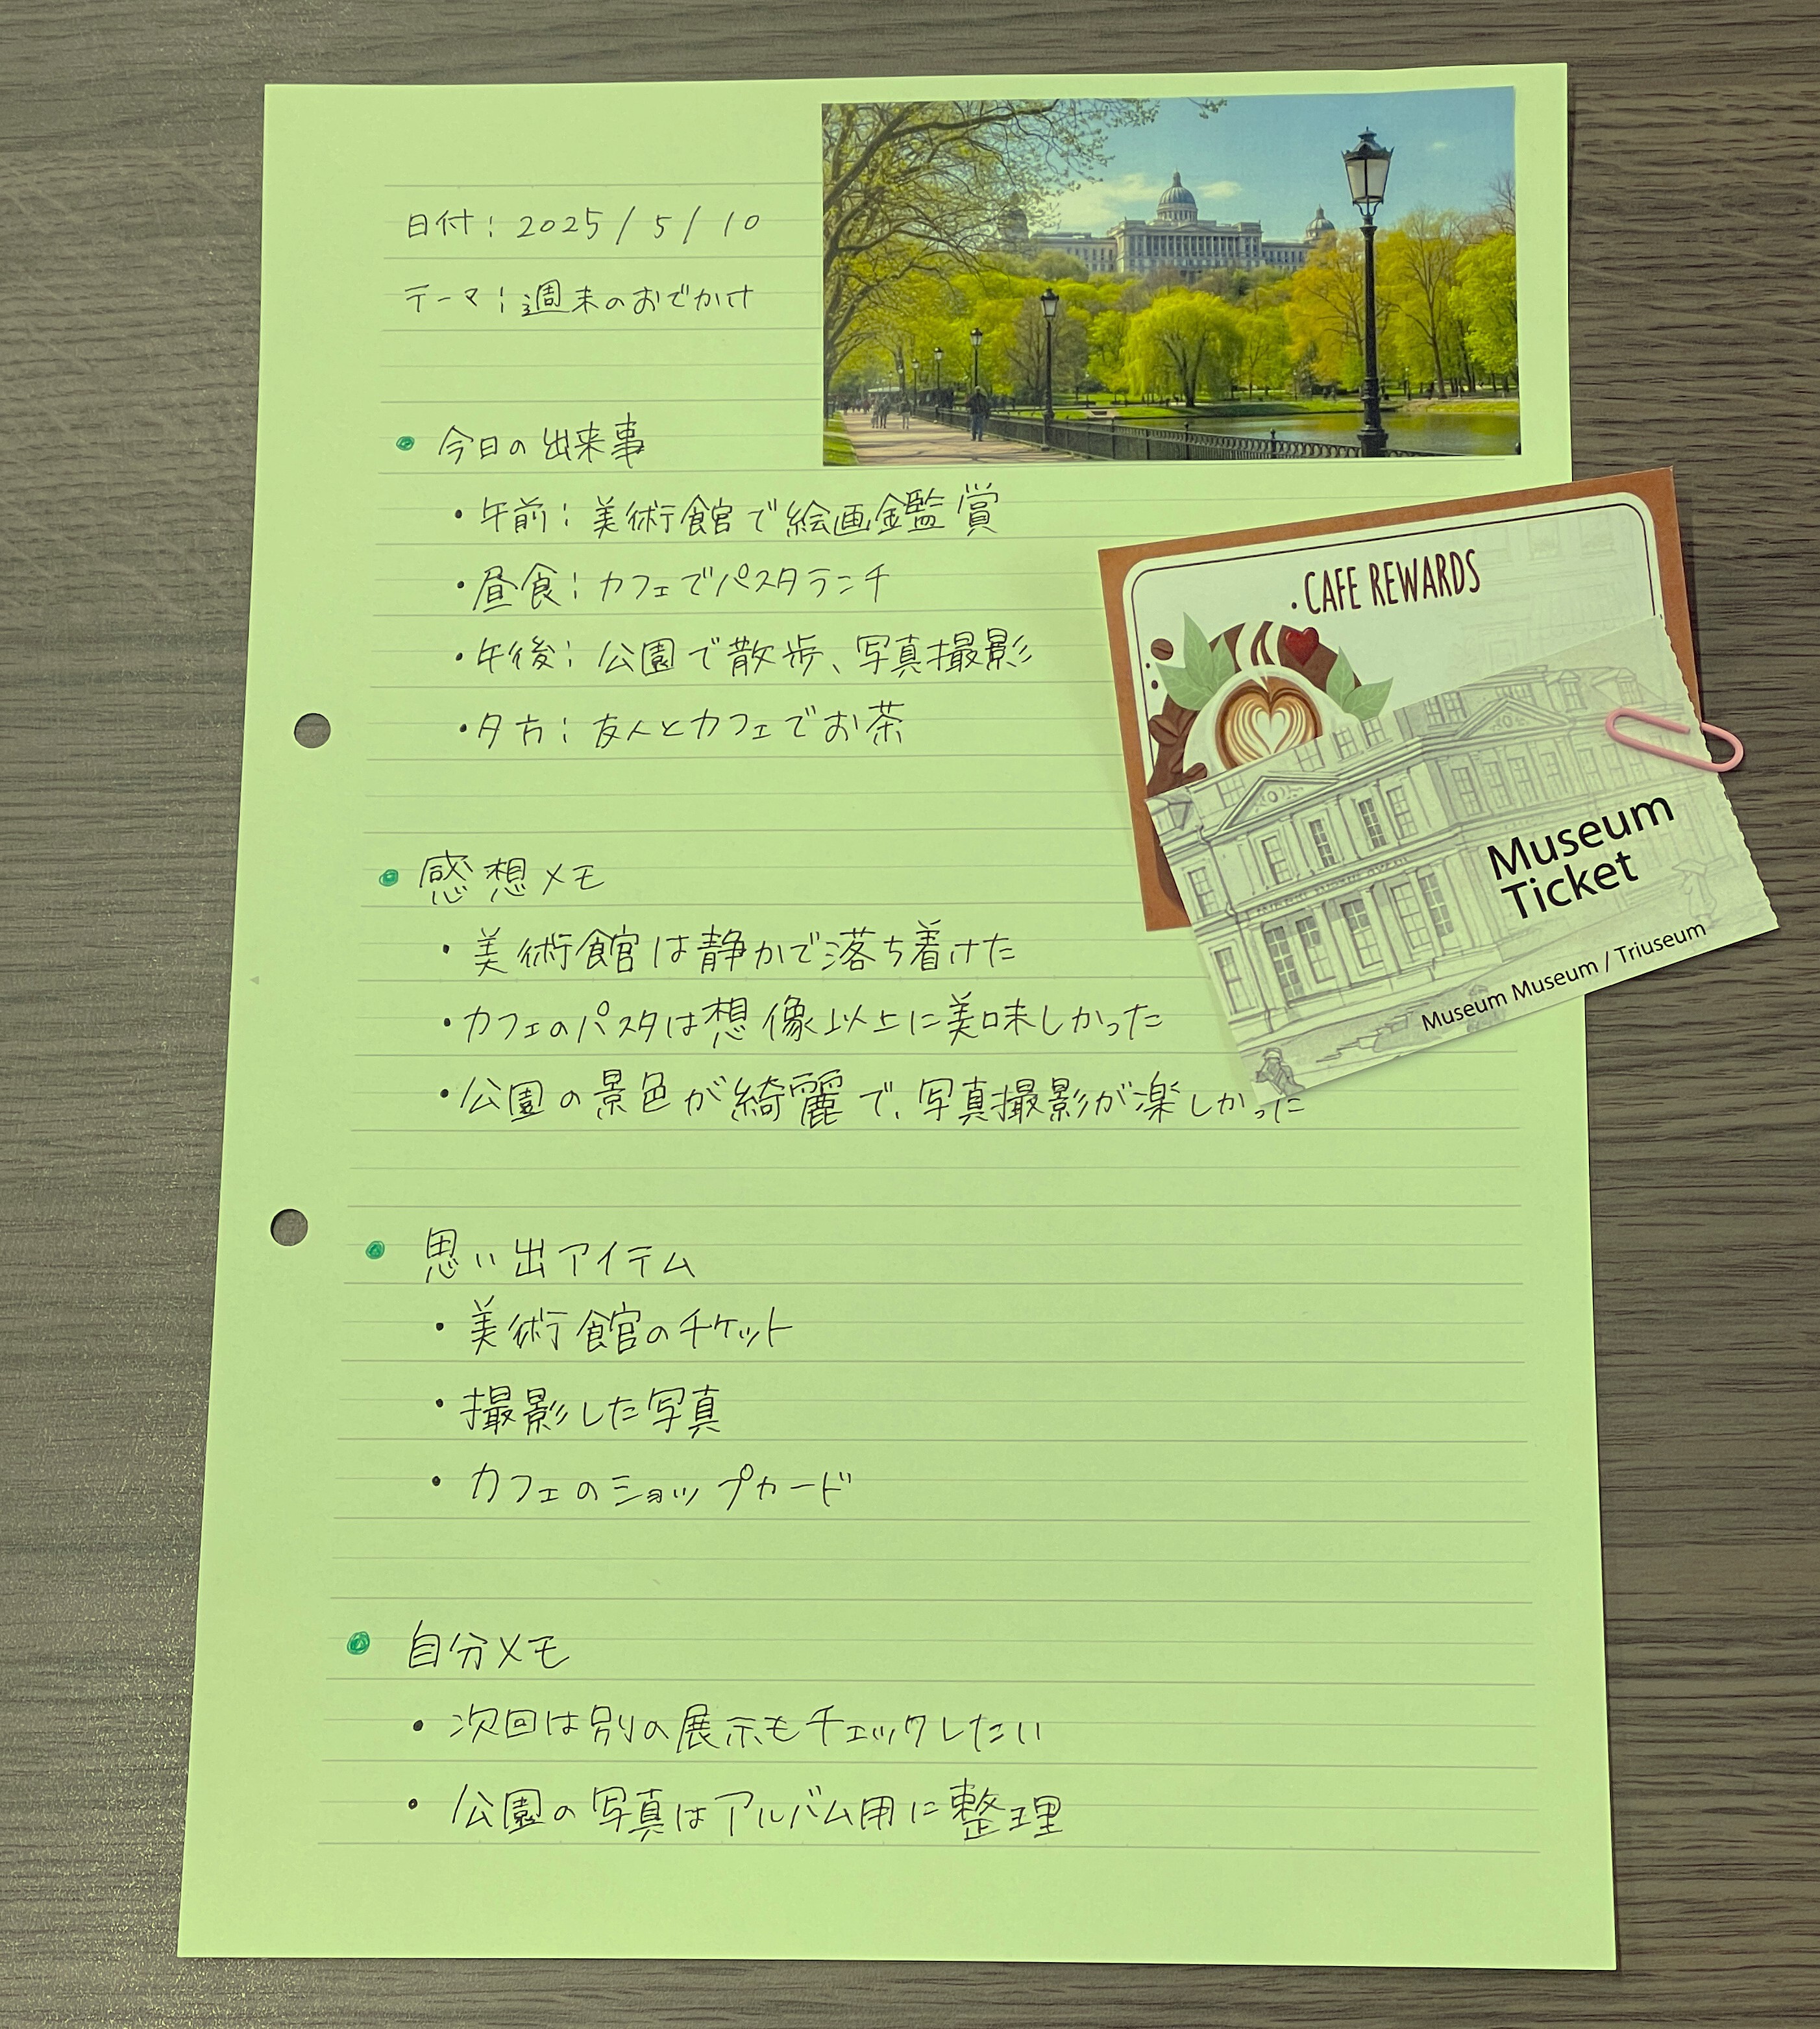 日付：2025/5/10
テーマ：週末のおでかけ
今日の出来事
・午前：美術館で絵画鑑賞
・昼食：カフェでパスタランチ
・午後：公園で散歩、写真撮影
・夕方：友人とカフェでお茶
・CAFE REWARDS
Museum
Ticket
Museum Museum / Triuseum
感想メモ
・美術館は静かで落ち着けた
・カフェのパスタは想像以上に美味しかった
・公園の景色が綺麗で、写真撮影が楽しかった
思い出アイテム
・美術館のチケット
・撮影した写真
・カフェのショップカード
自分メモ
・次回は別の展示もチェックしたい
・公園の写真はアルバム用に整理